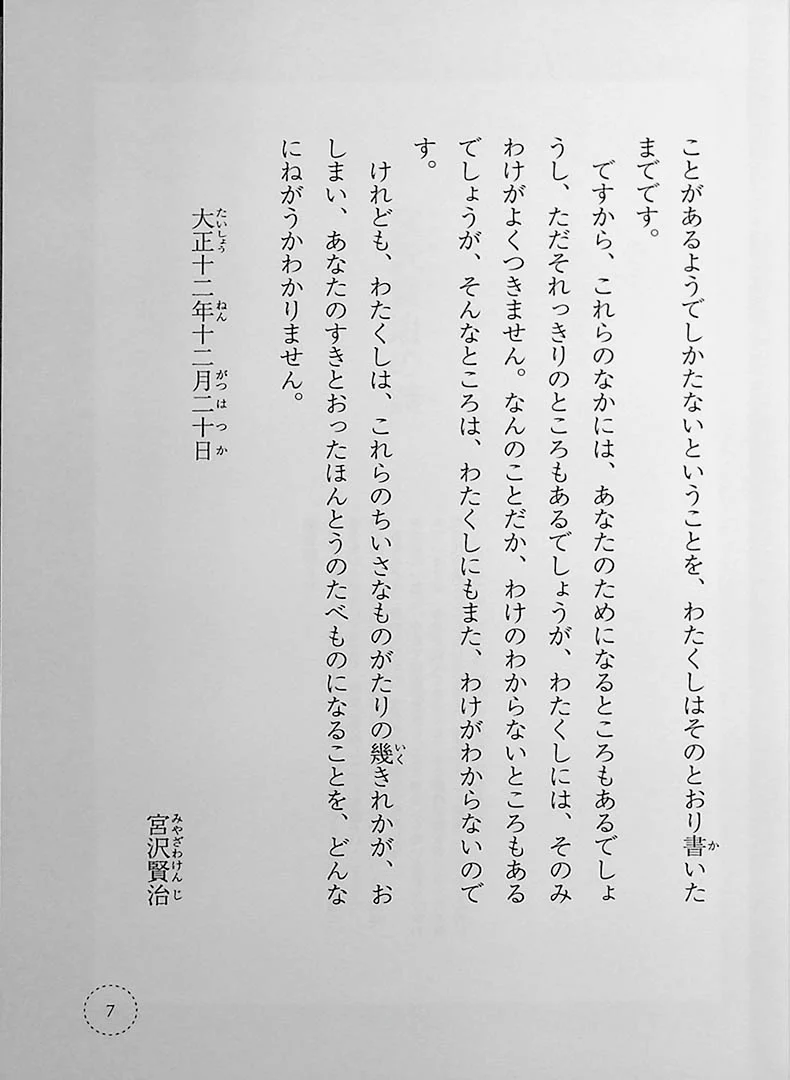 ことがあるようでしかたないということを、わたくしはそのとおり書いた
までです。
　ですから、これらのなかには、あなたのためになるところもあるでしょ
うし、ただそれっきりのところもあるでしょうが、わたくしには、そのみ
わけがよくつきません。なんのことだか、わけのわからないところもある
でしょうが、そんなところは、わたくしにもまた、わけがわからないので
す。
　けれども、わたくしは、これらのちいさなものがたりの幾きれかが、お
しまい、あなたのすきとおったほんとうのたべものになることを、どんな
にねがうかわかりません。
大正十二年十二月二十日
宮沢賢治
7